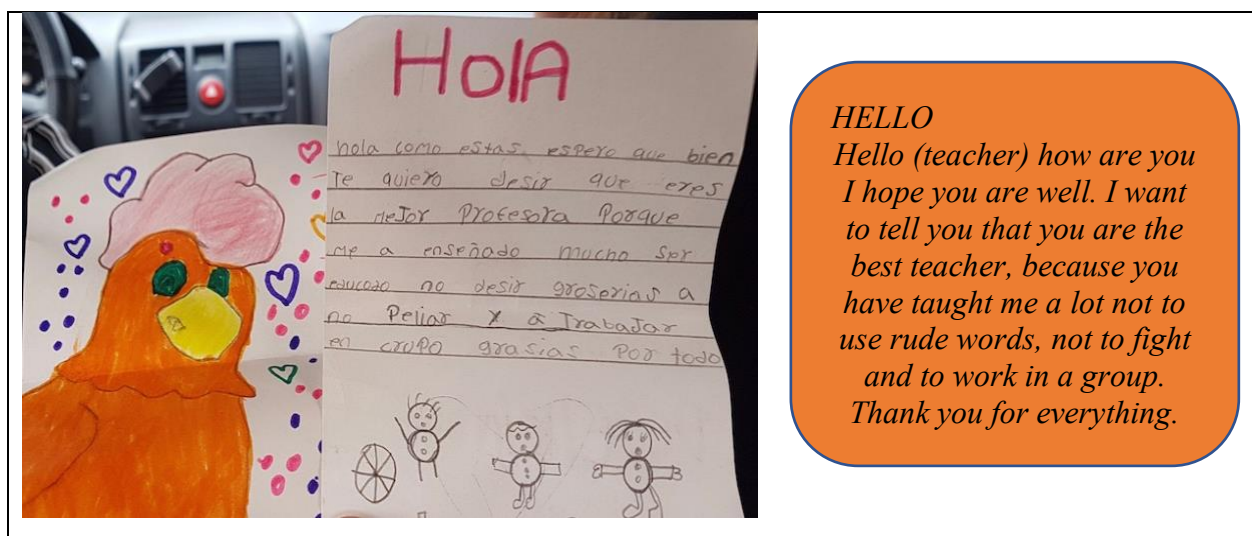 HolA
hola como estas. espero que bien
Te quiero desir que eres
la meJor Profesora Porque
me a enseñado mucho ser
educado no desir groserias a
no Peliar y a TrabaJar
en grupo grasias Por todo
HELLO
Hello (teacher) how are you
I hope you are well. I want
to tell you that you are the
best teacher, because you
have taught me a lot not to
use rude words, not to fight
and to work in a group.
Thank you for everything.